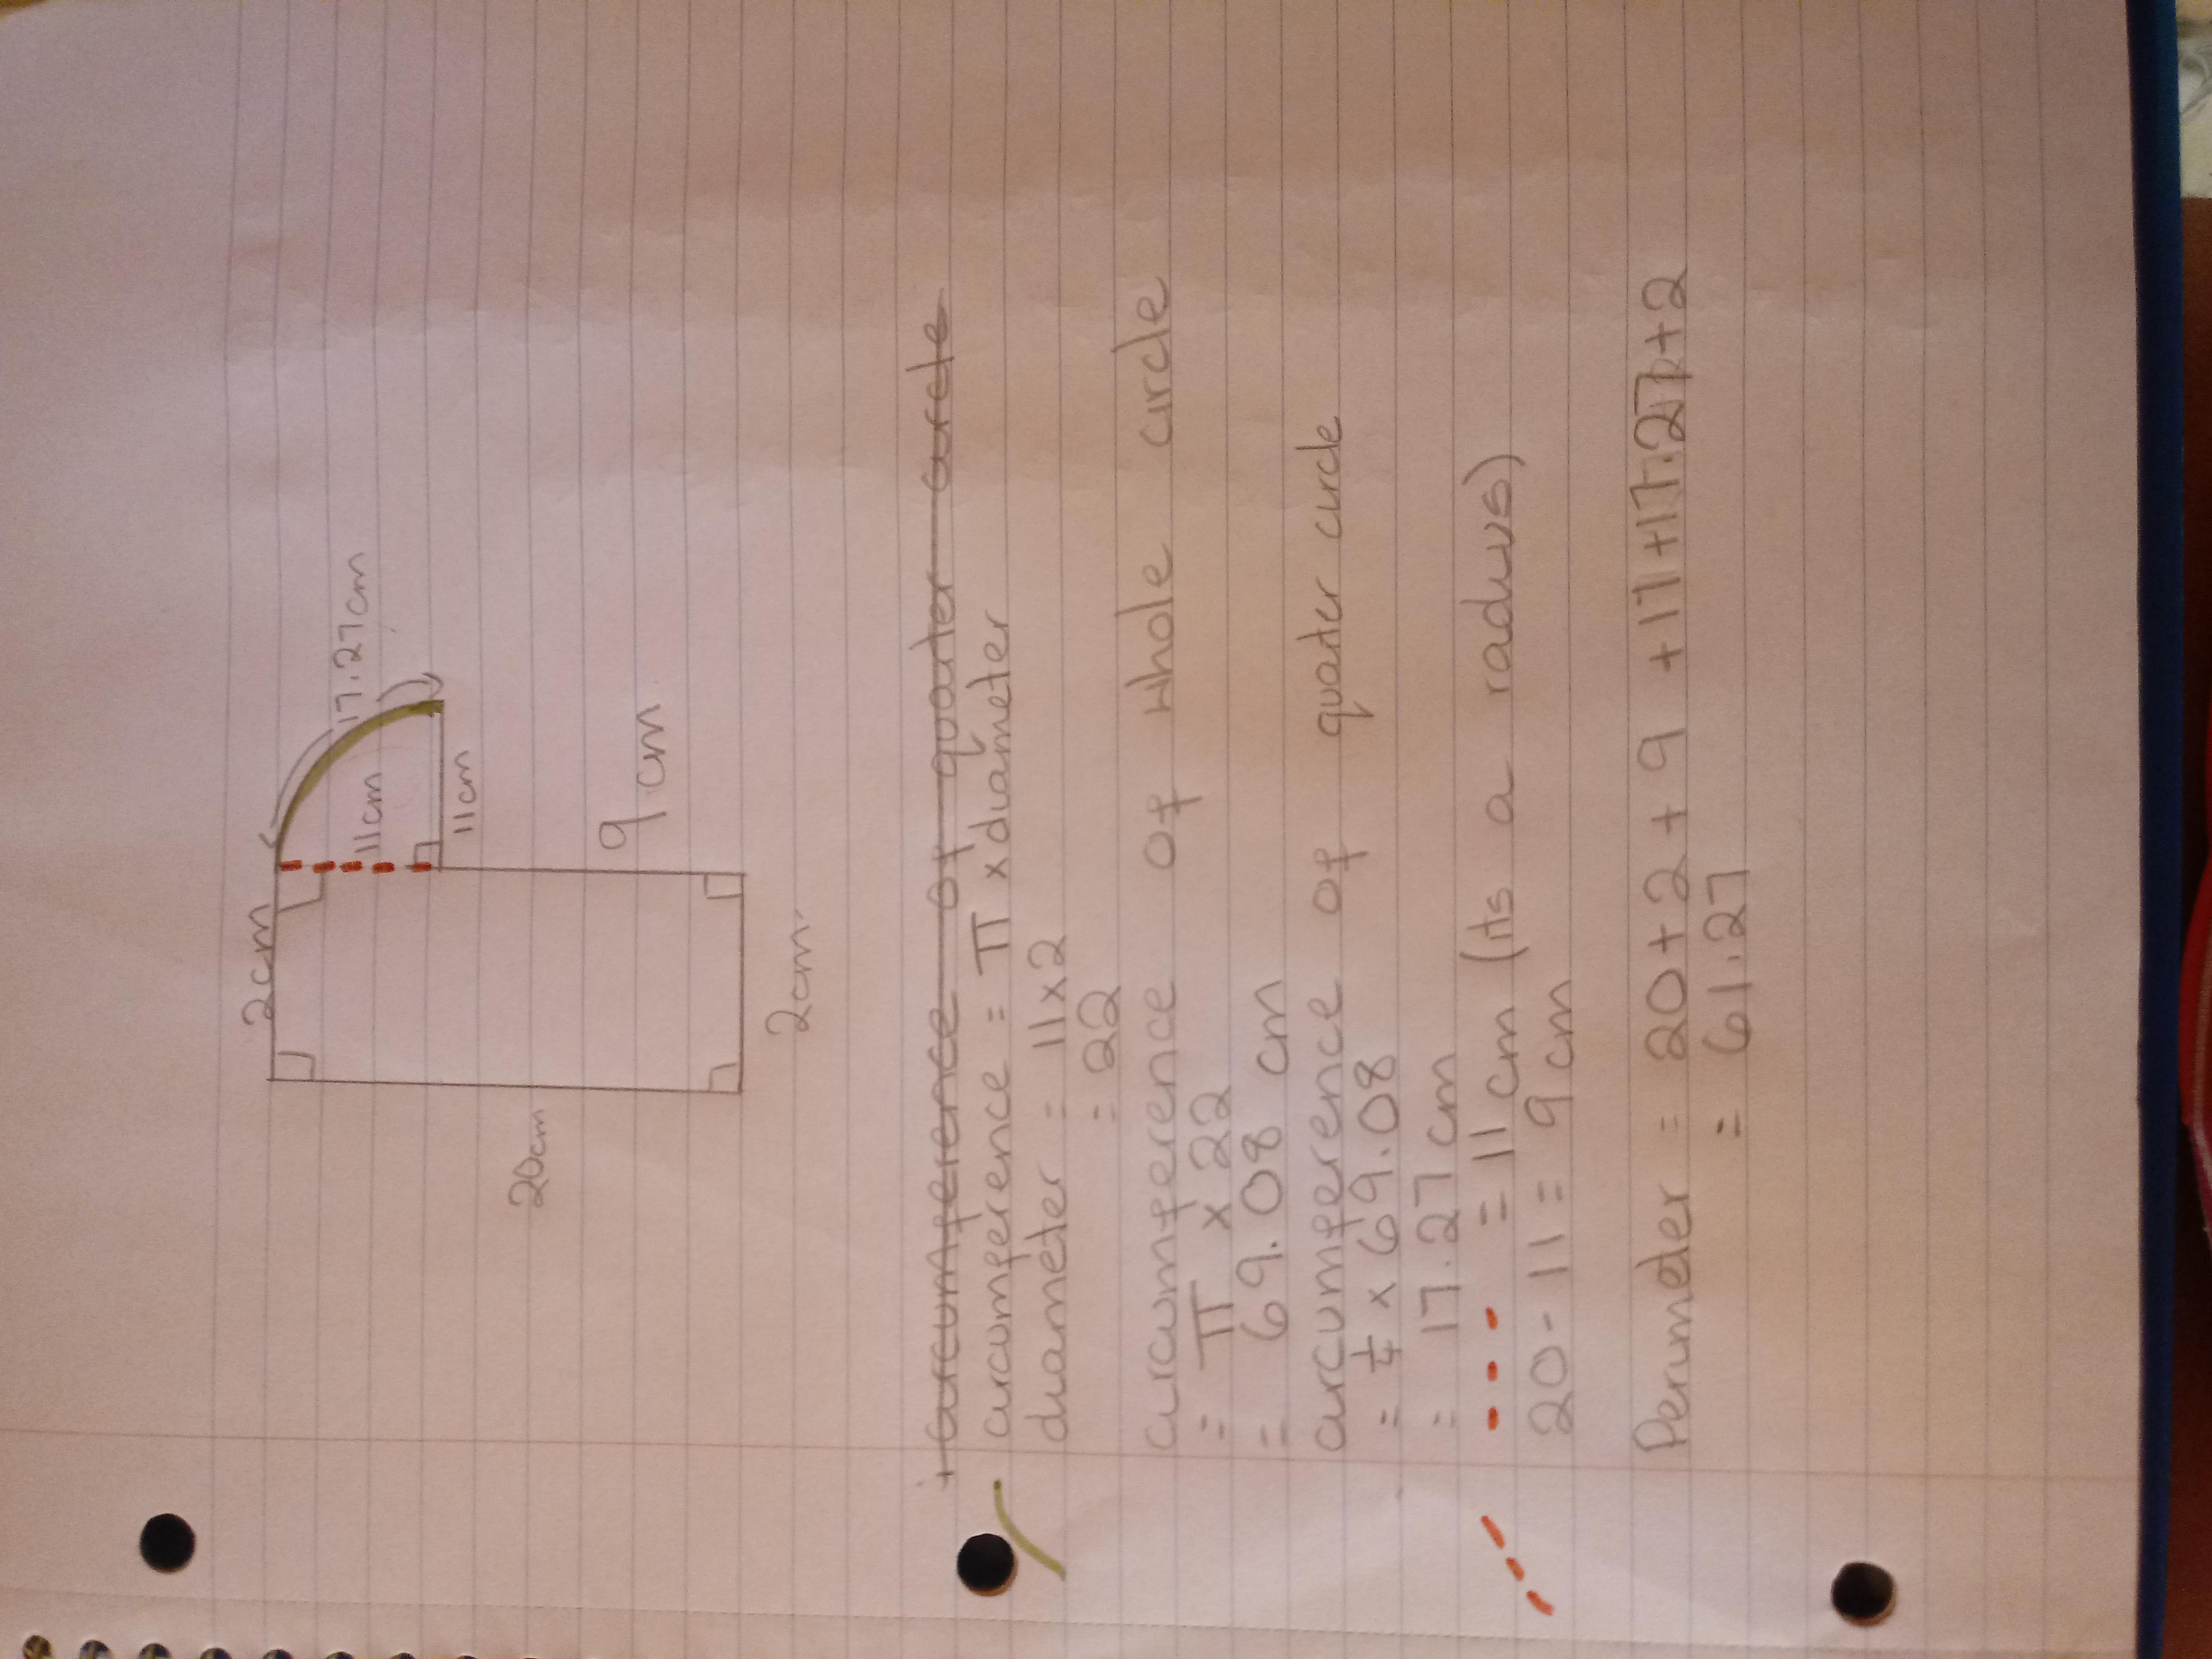 2cm
17.27cm
11cm
11cm
20cm
9cm
2cm
circumference of quater circle
circumference = π x diameter
diameter = 11x2
= 22
circumference of whole circle
= π x 22
= 69.08 cm
circumference of quater circle
= 1/4 x 69.08
= 17.27cm
= 11cm (its a radius)
20-11 = 9cm
Perimeter = 20+2+9+11+17.27+2
= 61.27